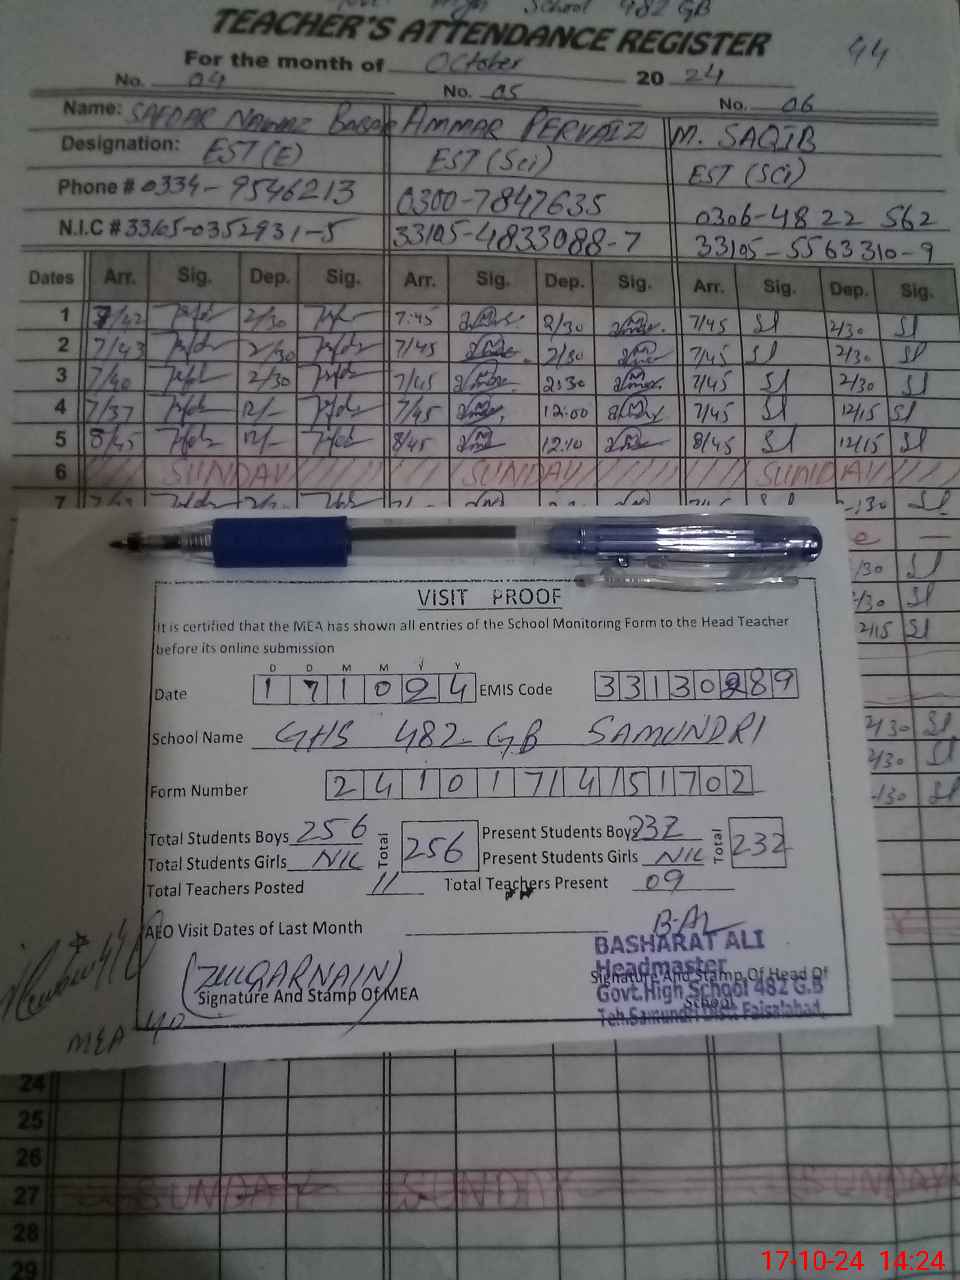 School 482 GB
TEACHER'S ATTENDANCE REGISTER
44
For the month of October 2024
No. 04 No. 05 No. 06
Name: SAFDAR NAWAZ Babar AMMAR PERVAIZ M. SAQIB
Designation: EST (E) EST (Sci) EST (SCi)
Phone # 0334-9546213 0300-7847635 0306-4822562
N.I.C # 33105-0352931-5 33105-4833088-7 33105-5563310-9
Dates Arr. Sig. Dep. Sig. Arr. Sig. Dep. Sig. Arr. Sig. Dep. Sig.
1 7/42 2/30 7:45 2/30 7/45 2/30
2 7/43 2/30 7/45 2/30 7/45 2/30
3 7/40 2/30 7/45 2:30 7/45 2/30
4 7/37 12/- 7/45 12:00 7/45 12/15
5 8/45 12/- 8/45 12:10 8/45 12/15
6 SUNDAY SUNDAY SUNDAY
7
VISIT PROOF
It is certified that the MEA has shown all entries of the School Monitoring Form to the Head Teacher
before its online submission
D D M M Y Y
Date 171024 EMIS Code 33130289
School Name GHS 482 GB SAMUNDRI
Form Number 24101714151702
Total Students Boys 256 Total 256 Present Students Boys 232 Total 232
Total Students Girls NIL Present Students Girls NIL
Total Teachers Posted 11 Total Teachers Present 09
AEO Visit Dates of Last Month
BASHARAT ALI
Headmaster
(ZULQARNAIN) Signature And Stamp Of Head Of
Signature And Stamp Of MEA Govt.High School 482 G.B
School
Teh.Samundri Distt Faisalabad.
MEA 40
24
25
26
27 SUNDAY SUNDAY SUNDAY
28
29
17-10-24 14:24